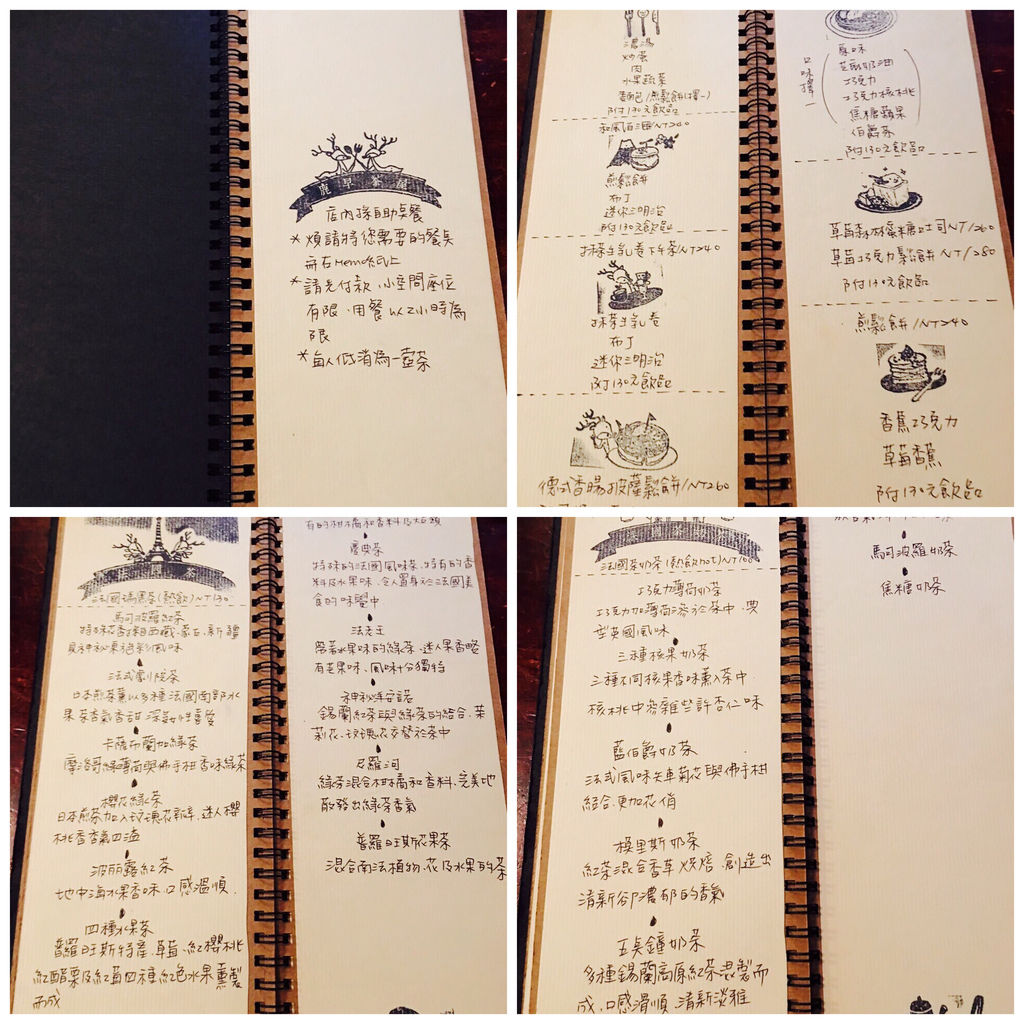 鹿早茶屋
店內採自助桌餐
*煩請將您需要的餐點
寫在Memo紙上
*請先付款.小空間座位
有限.用餐以2小時為
限
*每人低消為一壺茶
濃湯
炒蛋
肉
水果蔬菜
附130元飲品
NT240
煎鬆餅
布丁
迷你三明治
附130元飲品
抹茶生乳卷下午茶NT240
抹茶生乳卷
布丁
迷你三明治
附130元飲品
德式香腸披薩鬆餅/NT260
口味擇一
原味
巧克力
巧克力核桃
焦糖蘋果
伯爵茶
附130元飲品
草莓森林蜜糖吐司NT/260
草莓巧克力鬆餅NT/280
附130元飲品
煎鬆餅/NT240
香蕉巧克力
草莓香蕉
附130元飲品
法國瑪黑茶(熱飲)NT130
馬可波羅紅茶
法式劇院茶
日本煎茶薰以多種法國南部水
卡薩布蘭加綠茶
摩洛哥綠薄荷與佛手柑香味綠茶
櫻花綠茶
日本煎茶加入玫瑰花瓣.迷人櫻
桃香香氣四溢
波麗露紅茶
地中海水果香味.口感溫順.
四種水果茶
普羅旺斯特產.草莓.紅櫻桃
紅醋栗及紅莓四種紅色水果薰製
而成
慶典茶
特殊的法國風味茶.特有的香
料及水果味.令人置身於法國美
食的味覺中
法老王
帶著水果味的綠茶.迷人果香略
有芒果味.風味十分獨特
神祕洋安諾
錫蘭紅茶與綠茶的結合.茉
莉花.玫瑰花交替於茶中
尼羅河
綠茶混合柑橘和香料.完美地
散發出綠茶香氣
普羅旺斯花果茶
混合南法植物.花及水果的茶
法國茶奶茶(熱飲hot)NT/160
巧克力薄荷奶茶
巧克力加薄荷溶於茶中.典
型英國風味
三種核果奶茶
三種不同核果香味薰入茶中
核桃中滲雜些許杏仁味
藍伯爵奶茶
法式風味矢車菊花與佛手柑
結合.更加花俏
模里斯奶茶
紅茶混合香草烘焙.創造出
清新卻濃郁的香氣
五點鐘奶茶
多種錫蘭高原紅茶混製而
成.口感滑順.清新淡雅
馬可波羅奶茶
焦糖奶茶